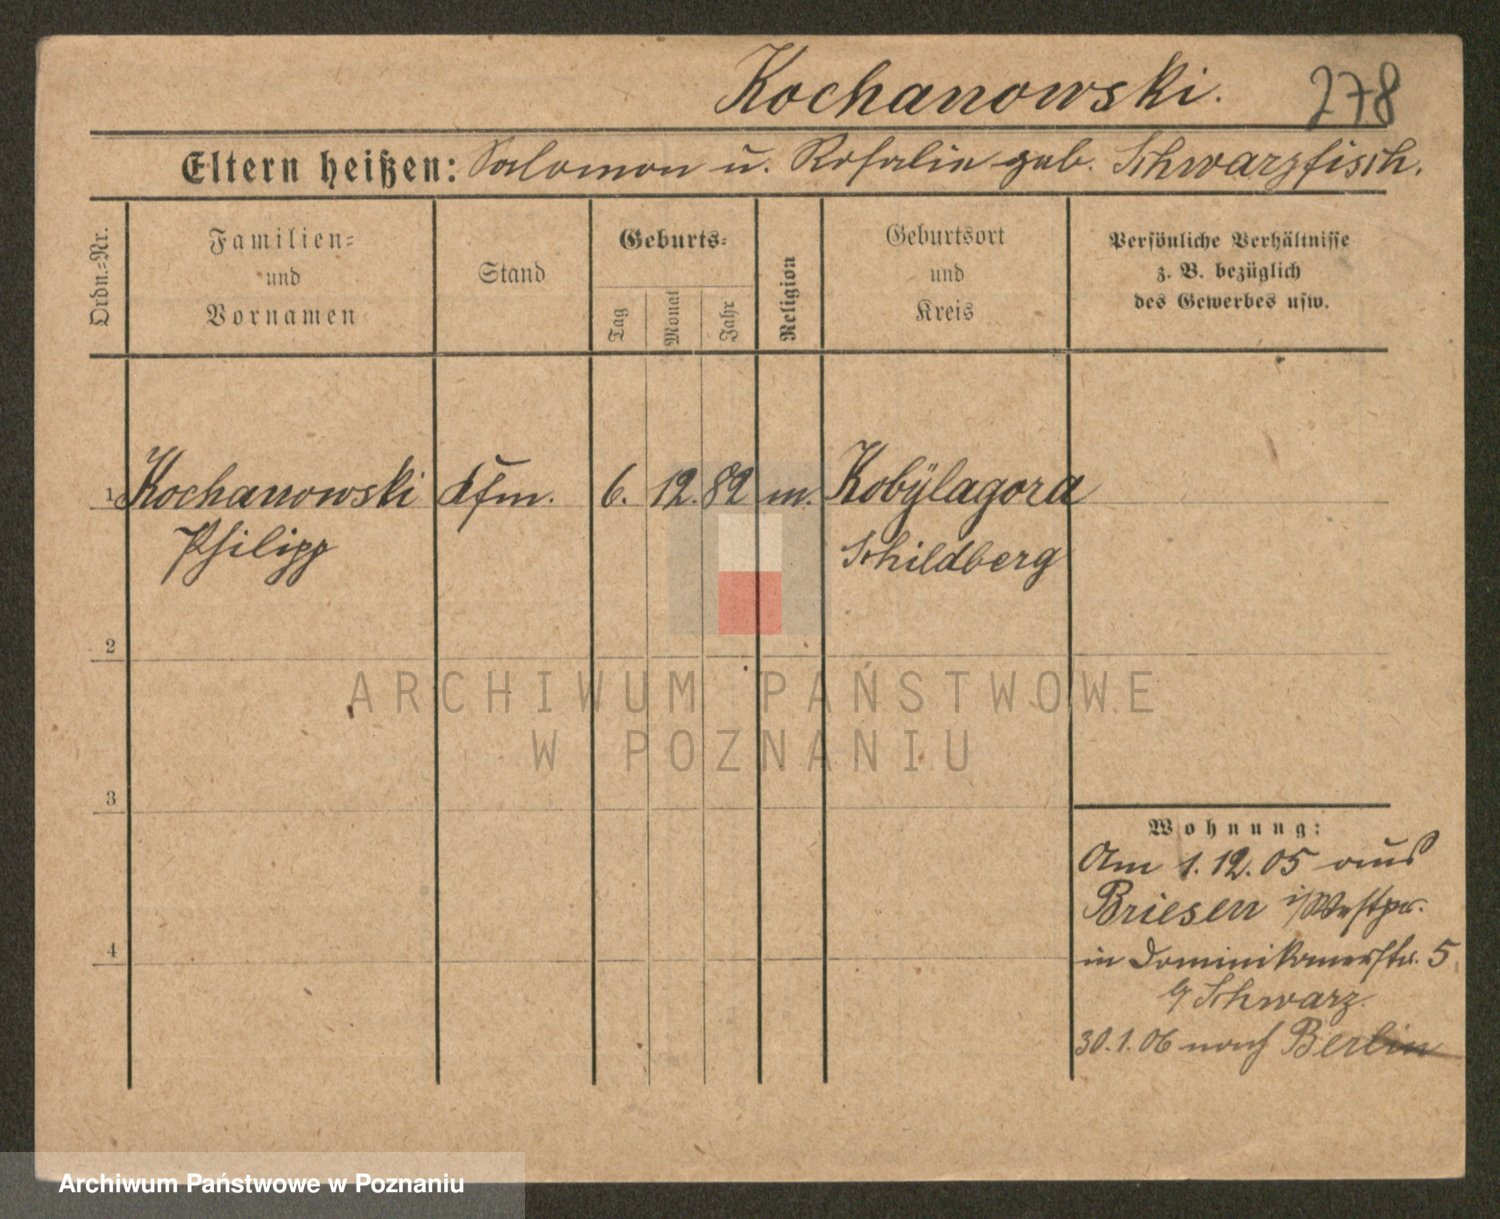 Kochanowski. 278
Eltern heißen: Salomon u. Rosalie geb. Schwarzfisch.
Ordn.-Nr.
Familien-
und
Vornamen
Stand
Geburts-
Tag
Monat
Jahr
Religion
Geburtsort
und
Kreis
Persönliche Verhältnisse
z. B. bezüglich
des Gewerbes usw.
1 Kochanowski Kfm. 6. 12. 82 m. Kobÿlagora
Philipp Schildberg
2
ARCHIWUM PAŃSTWOWE
W POZNANIU
3
Wohnung:
Am 1.12.05 aus
Briesen i/Westpr.
4
in Dominikanerstr. 5
b/ Schwarz.
30.1.06 nach Berlin
Archiwum Państwowe w Poznaniu